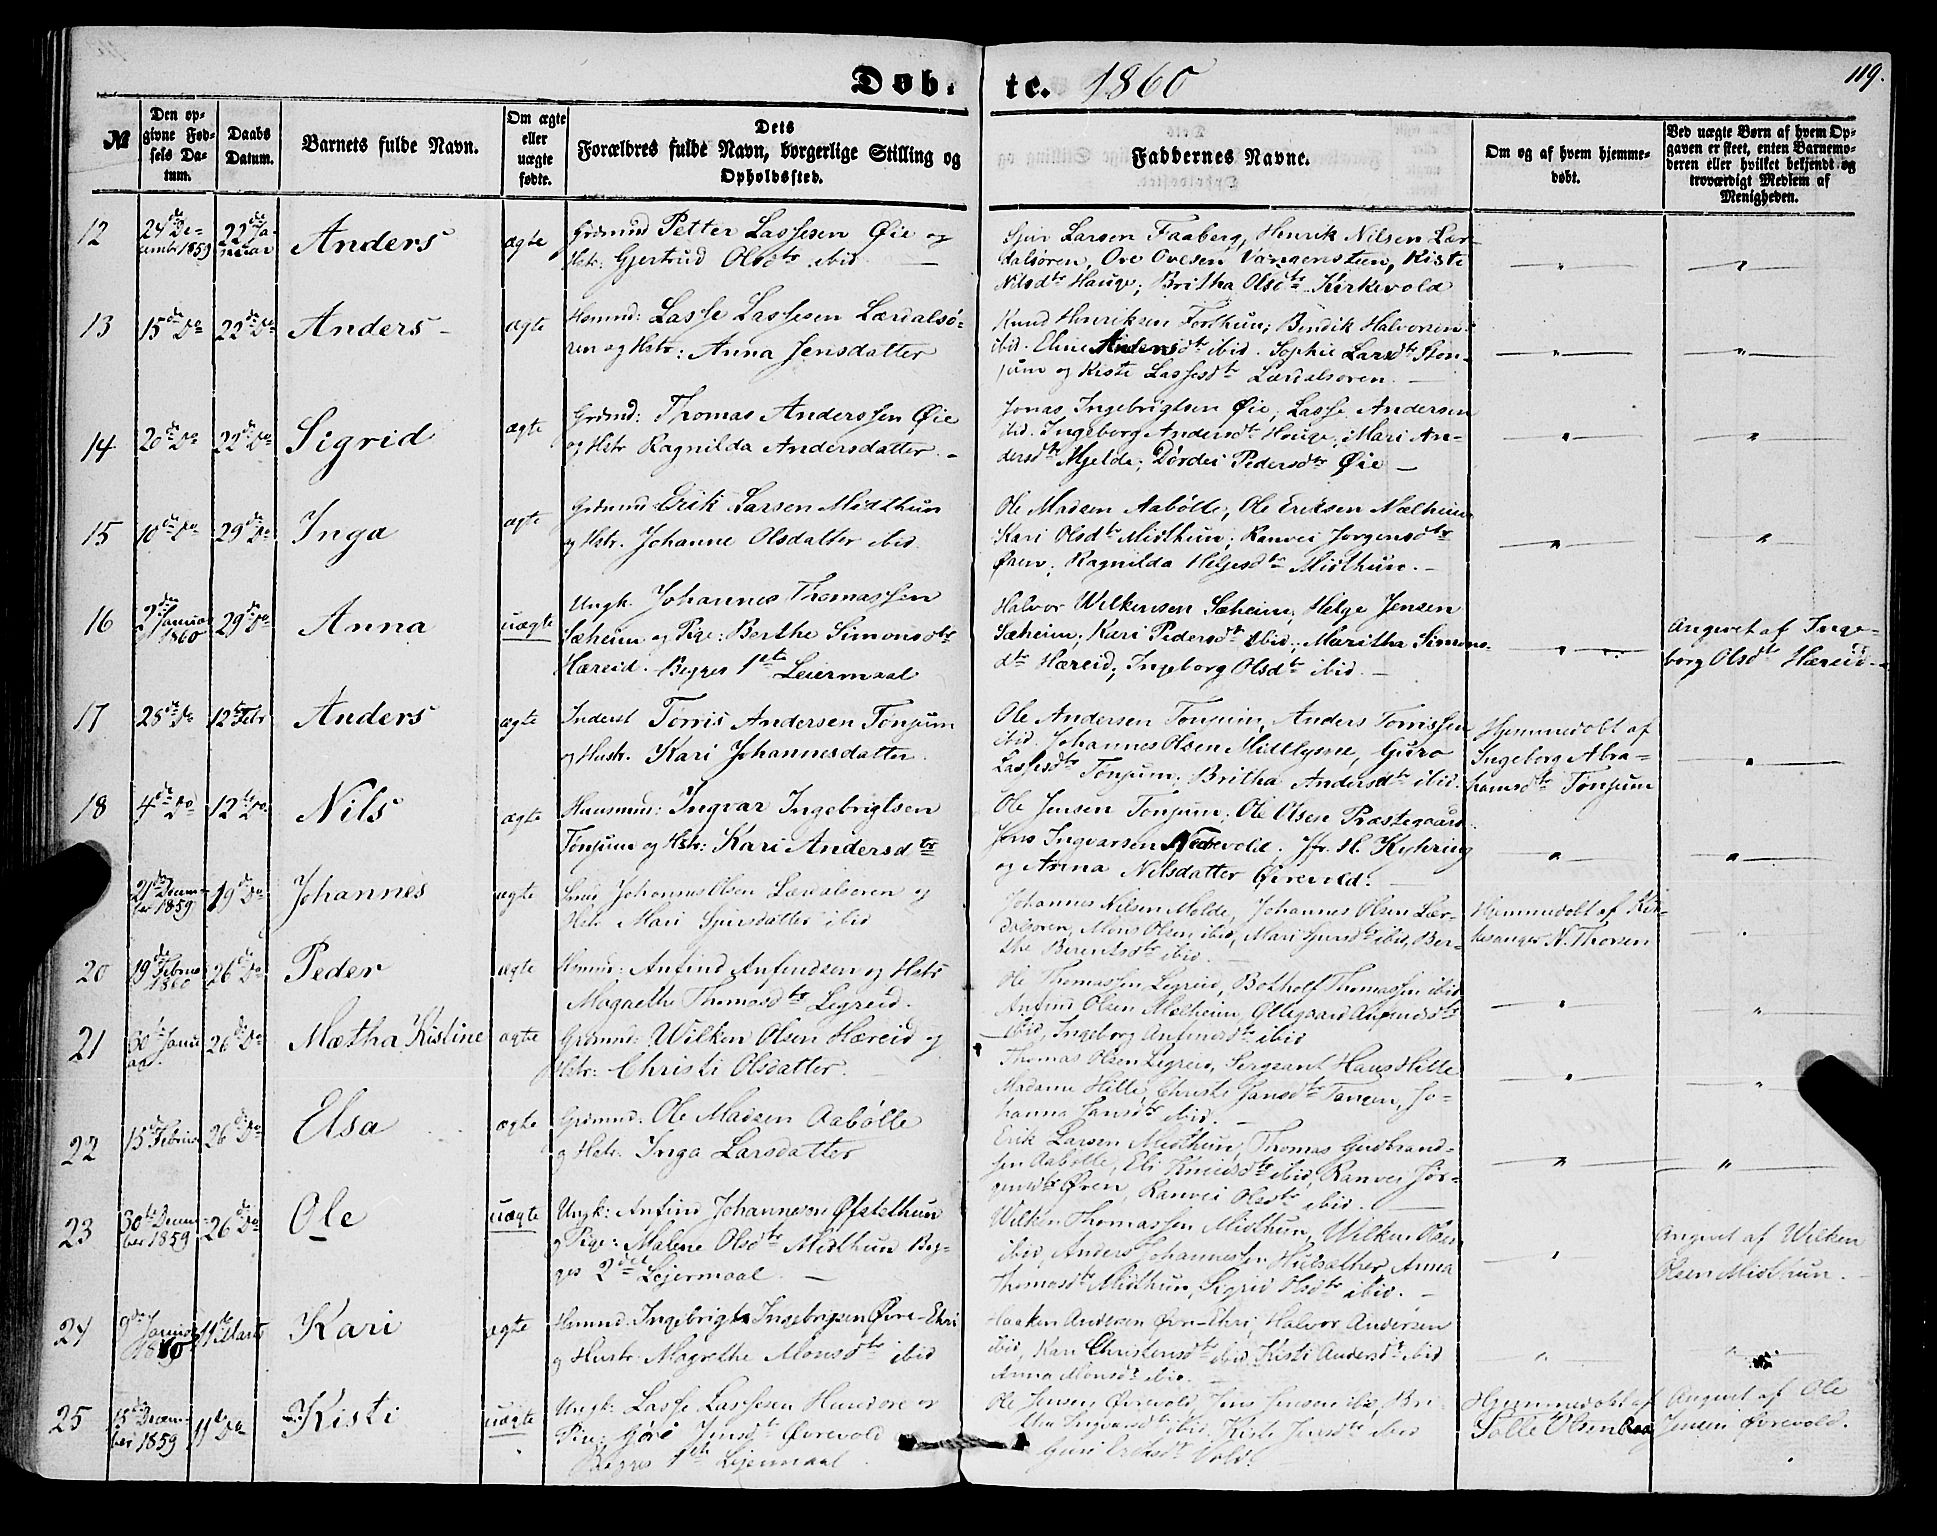 Døb- te. 1860
119.
№
Den opgivne Fødsels Datum.
Daabs Datum.
Barnets fulde Navn.
Om ægte eller uægte fødte.
Dets Forældres fulde Navn, borgerlige Stilling og Opholdssted.
Faddernes Navne.
Om og af hvem hjemmedøbt.
Ved uægte Børn af hvem Opgaven er skeet, enten Barnemoderen eller hvilket bekjendt og troværdigt Medlem af Menigheden.
12
24de December 1859
22de Januar
Anders
ægte
Grdmnd Petter Lassesen Øie og
Hstr: Gjertrud Olsdtr ibid
Sjur Larsen Faaberg, Henrik Nilsen Lær-
dalsøren, Ove Ovesen Vangensteen, Kisti
Nilsdtr Hauge; Britha Olsdtr Kirkevold
13
15de Do
22de Do
Anders
ægte
Hsmnd: Lasse Lassesen Lærdalsø-
ren og Hstr: Anna Jensdatter
Knud Henriksen Forthun; Bendik Halvorsen
ibid. Eline Andersdtr ibid. Sophie Larsdtr Ston-
jum og Kisti Lassesdtr Lærdalsøren.
14
20de Do
22de Do
Sigrid
ægte
Grdmnd: Thomas Anderssen Øie
og Hstr Ragnilda Andersdatter.
Jonas Ingebrigtsen Øie, Lasse Andersen
ibid. Ingeborg Andersdtr Hauge; Mari An-
dersdtr Mjelde; Dordei Pedersdtr Øie
15
10de Do
29de Do
Inga
ægte
Grdmnd: Erik Larsen Midthun
og Hstr. Johanne Olsdatter ibid.
Ole Madsen Aabølle, Ole Eriksen Mælheim
Kari Olsdtr Midthun; Ranvei Jørgensdtr
Øren; Ragnilda Helgesdtr Midthun.
16
Januar 1860
29de Do
Anna
uægte
Ungk. Johannes Thomassen
Sæheim og Pige: Berthe Simonsdtr
Hæreid. Begges 1ste Leiermaal
Halvor Wilkensen Sæheim, Helge Jensen
Sæheim; Kari Pedersdtr ibid; Maritha Simons-
dtr Hæreid; Ingeborg Olsdtr ibid.
Angivet af Inge-
borg Olsdtr Hæreid
17
25de Do
12te Febr
Anders
ægte
Inderst Torris Andersen Tonjum
og Hustr. Kari Johannesdatter.
Ole Andersen Tonjum, Anders Torrissen
ibid. Johannes Olsen Midtlysne, Guro
Lassesdtr Tonjum; Britha Andersdtr ibid.
Hjemmedøbt af
Ingeborg Abra-
hamsdtr Tonjum
18
4de Do
12te Do
Nils
ægte
Huusmnd: Ingvar Ingebrigtsen
Tonjum og Hstr: Kari Andersdtr
Ole Jensen Tonjum; Ole Olsen Præstegaard
Jens Ingvarsen Nedrevold. Jfr. H. Kyhring
og Anna Nilsdatter Øvrevold.
21de December 1859
19de Do
Johannes
ægte
Johannes Olsen Lærdalsøren og
Hstr Mari Sjursdatter ibid
Johannes Nilsen Molde, Johannes Olsen Lær-
dalsøren, Mons Olsen ibid, Mari Sjursdtr ibid, Ber-
the Berentsdtr ibid.
Hjemmedøbt af Kir-
kesanger N. Thorsen
20
19de Februar 1860
26de Do
Peder
ægte
Hsmnd: Anfind Anfindsen og Hstr
Magrethe Thomasdtr Legreid.
Ole Thomassen Legreid, Botholf Thomassen ibid
Anfind Olsen Mælheim, Ollegaard Anfindsdtr
ibid, Ingeborg Anfindsdtr ibid
21
30te Januar
26de Do
Mætha Kistine
ægte
Grdmnd: Wilken Olsen Hæreid og
Hstr: Christi Olsdatter.
Thomas Olsen Legreid, Sergeant Hans Hille
Madame Hille, Christi Jansdtr Tangen, Jo-
hanna Jansdtr ibid.
22
15de Februar
26de Do
Elsa
ægte
Grdmnd: Ole Madsen Aabølle
og Hstr. Inga Larsdatter
Erik Larsen Midthun, Thomas Gudbrand-
sen Aabølle, Eli Knudsdtr ibid, Ranvei Jør-
gensdtr Øren, Ranvei Olsdtr ibid.
23
30te December 1859
26de Do
Ole
uægte
Ungk: Anfind Johannesen Øfstethun
og Pige: Malene Olsdtr Midthun Beg-
ges 2det Lejermaal.
Wilken Thomassen Midthun, Wilken Olsen
ibid, Anders Johannessen Anna
Thomasdtr Midthun, Sigrid Olsdtr ibid.
Angivet af Wilken
Olsen Midthun.
24
Januar 1860
11te Marts
Kari
ægte
Hsmnd. Ingebrigt Ingebrigtsen Øvre-Ehri
og Hustr: Magrethe Monsdtr ibid
Haaken Andersen Øvre-Ehri, Halvor Andersen
ibid, Kari Christensdtr ibid, Kisti Andersdtr ibid
Anna Monsdtr ibid.
25
15de December 1859
11te Do
Kisti
uægte
Ungk: Lasse Lassesen Hunderi og
Pige: Jensdtr Øvrevold
Begges 1ste Lejermaal
Ole Jensen Øvrevold, Jens Jensen ibid, Bri-
tha Ingvarsdtr ibid. Kisti Jensdtr ibid
Guri Eriksdtr Vold.
Hjemmedøbt af
Olsen
Angivet af Ole
Jensen Øvrevold.